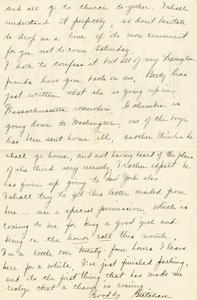 and all go to church together. I shall
understand it perfectly, so don't hesitate
to drop me a line, if it's more convenient
for you not to come Saturday.
I hate to confess it but all of my Lexington
friends have gone back on me, Betty has
just written, that she is going up in
Massachusetts somewhere, Columbia is
going down to Washington, one of the boys
has been sent home ill, another thinks he
shall go home, and not having heard of the plans
of the third very recently I rather expect he
has given up going to New York also
I shall try to get this letter mailed from
here - use a special permission, which is
coming to me for being a good girl and
being on the honor roll this month.
In a little over twenty-four hours I leave
here for a while. I've just finished packing,
and it's the first thing that has made me
realize that a change is coming.
Good by